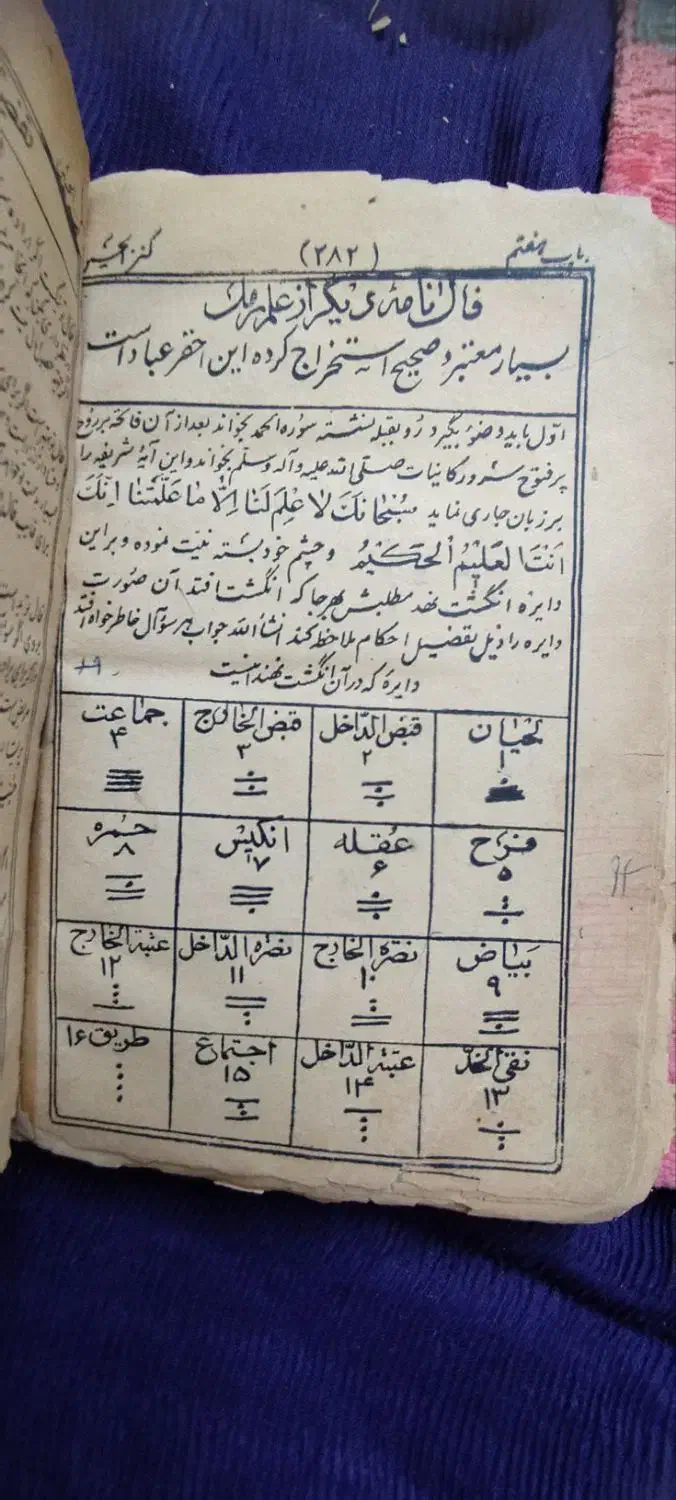 باب هفتم (۲۸۲) کنز الحسین
فال نامه دیگر از علم رمل
بسیار معتبر و صحیح است استخراج کرده این احقر عباد است
اوّل باید وضوٴ بگیرد رُو بقبله نشسته سوره الحمد بخواند بعد از آن فاتحه بر روح
پر فتوح سرور کاینات صلّی اللّه علیه و آله و سلّم بخواند و این آیهٔ شریفه را
بر زبان جاری نماید سُبْحَانَكَ لَا عِلْمَ لَنَا اِلَّا مَا عَلَّمْتَنَا اِنَّكَ
اَنْتَ الْعَلِیْمُ الْحَكِیْمُ و چشم خود بسته نیّت نموده و بر این
دایره انگشت نهد مطلبش بهر جا که انگشت افتد آن صورت
دایره را ذیل بتفضیل احکام ملاحظه کند انشأ اللّه جواب هر سؤال خاطر خواه افتد
دایره که در آن انگشت نهند اینست
لحیان ۱ قبض الدّاخل ۲ قبض الخارج ۳ جماعت ۴
فرح ۵ عقله ۶ انکیس ۷ حمره ۸
بیاض ۹ نصرة الخارج ۱۰ نصرة الدّاخل ۱۱ عتبة الخارج ۱۲
نقی الخدّ ۱۳ عتبة الدّاخل ۱۴ اجتماع ۱۵ طریق ۱۶